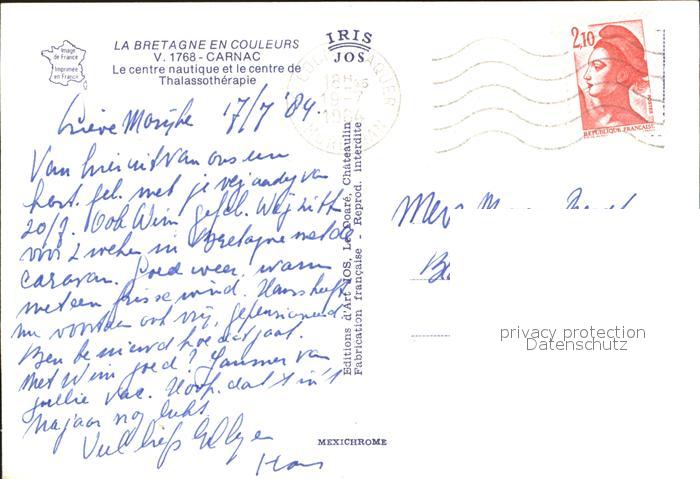 Image
de France
Imprimée
en France
LA BRETAGNE EN COULEURS
V. 1768 - CARNAC
Le centre nautique et le centre de
Thalassothérapie
IRIS
JOS
2,10
REPUBLIQUE FRANÇAISE
Lieve 17/7 '84.
Van hieruit van ons een
hart. fel. met je verjaardag van
20/7. Ook Wim gefel. Wij zitten
voor 2 weken in Bretagne met de
caravan. Goed weer, warm
met een frisse wind. Hans heeft
nu voortaan ook vrij, gepensioneerd
Ben benieuwd hoe dat gaat.
Met Wim goed? Jammer van
jullie vac. Hoop dat 't in 't
najaar nog lukt.
Veel liefs
Hans
Editions d'Art JOS, Le Doaré, Châteaulin
Fabrication française - Reprod. interdite
MEXICHROME
privacy protection
Datenschutz